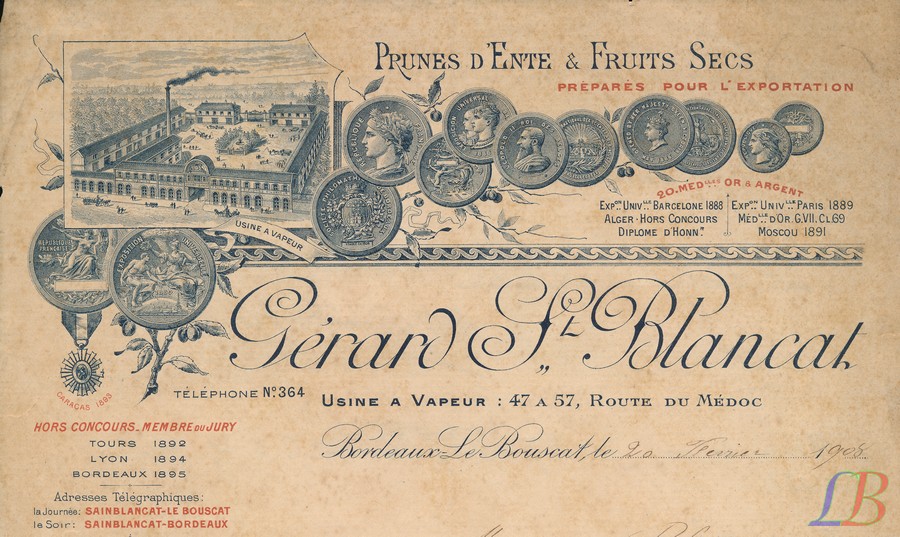 PRUNES D'ENTE & FRUITS SECS
PRÉPARÉS POUR L'EXPORTATION
20. MED^LLES OR & ARGENT
EXP^ON UNIV^LLE BARCELONE 1888
ALGER - HORS CONCOURS
DIPLOME D'HONN^R
EXP^ON UNIV^LLE PARIS 1889
MÉD^LLE D'OR. G. VII. CL 69
MOSCOU 1891
USINE A VAPEUR
RÉPUBLIQUE
FRANÇAISE
EXPOSITION UNIVERSELLE
CARACAS 1893
Gérard S^t Blancat
TÉLÉPHONE N° 364
USINE A VAPEUR : 47 A 57, ROUTE DU MÉDOC
HORS CONCOURS - MEMBRE DU JURY
TOURS 1892
LYON 1894
BORDEAUX 1895
Bordeaux-Le Bouscat, le 20 Février 1908
Adresses Télégraphiques:
la Journée: SAINBLANCAT-LE BOUSCAT
le Soir: SAINBLANCAT-BORDEAUX
LB